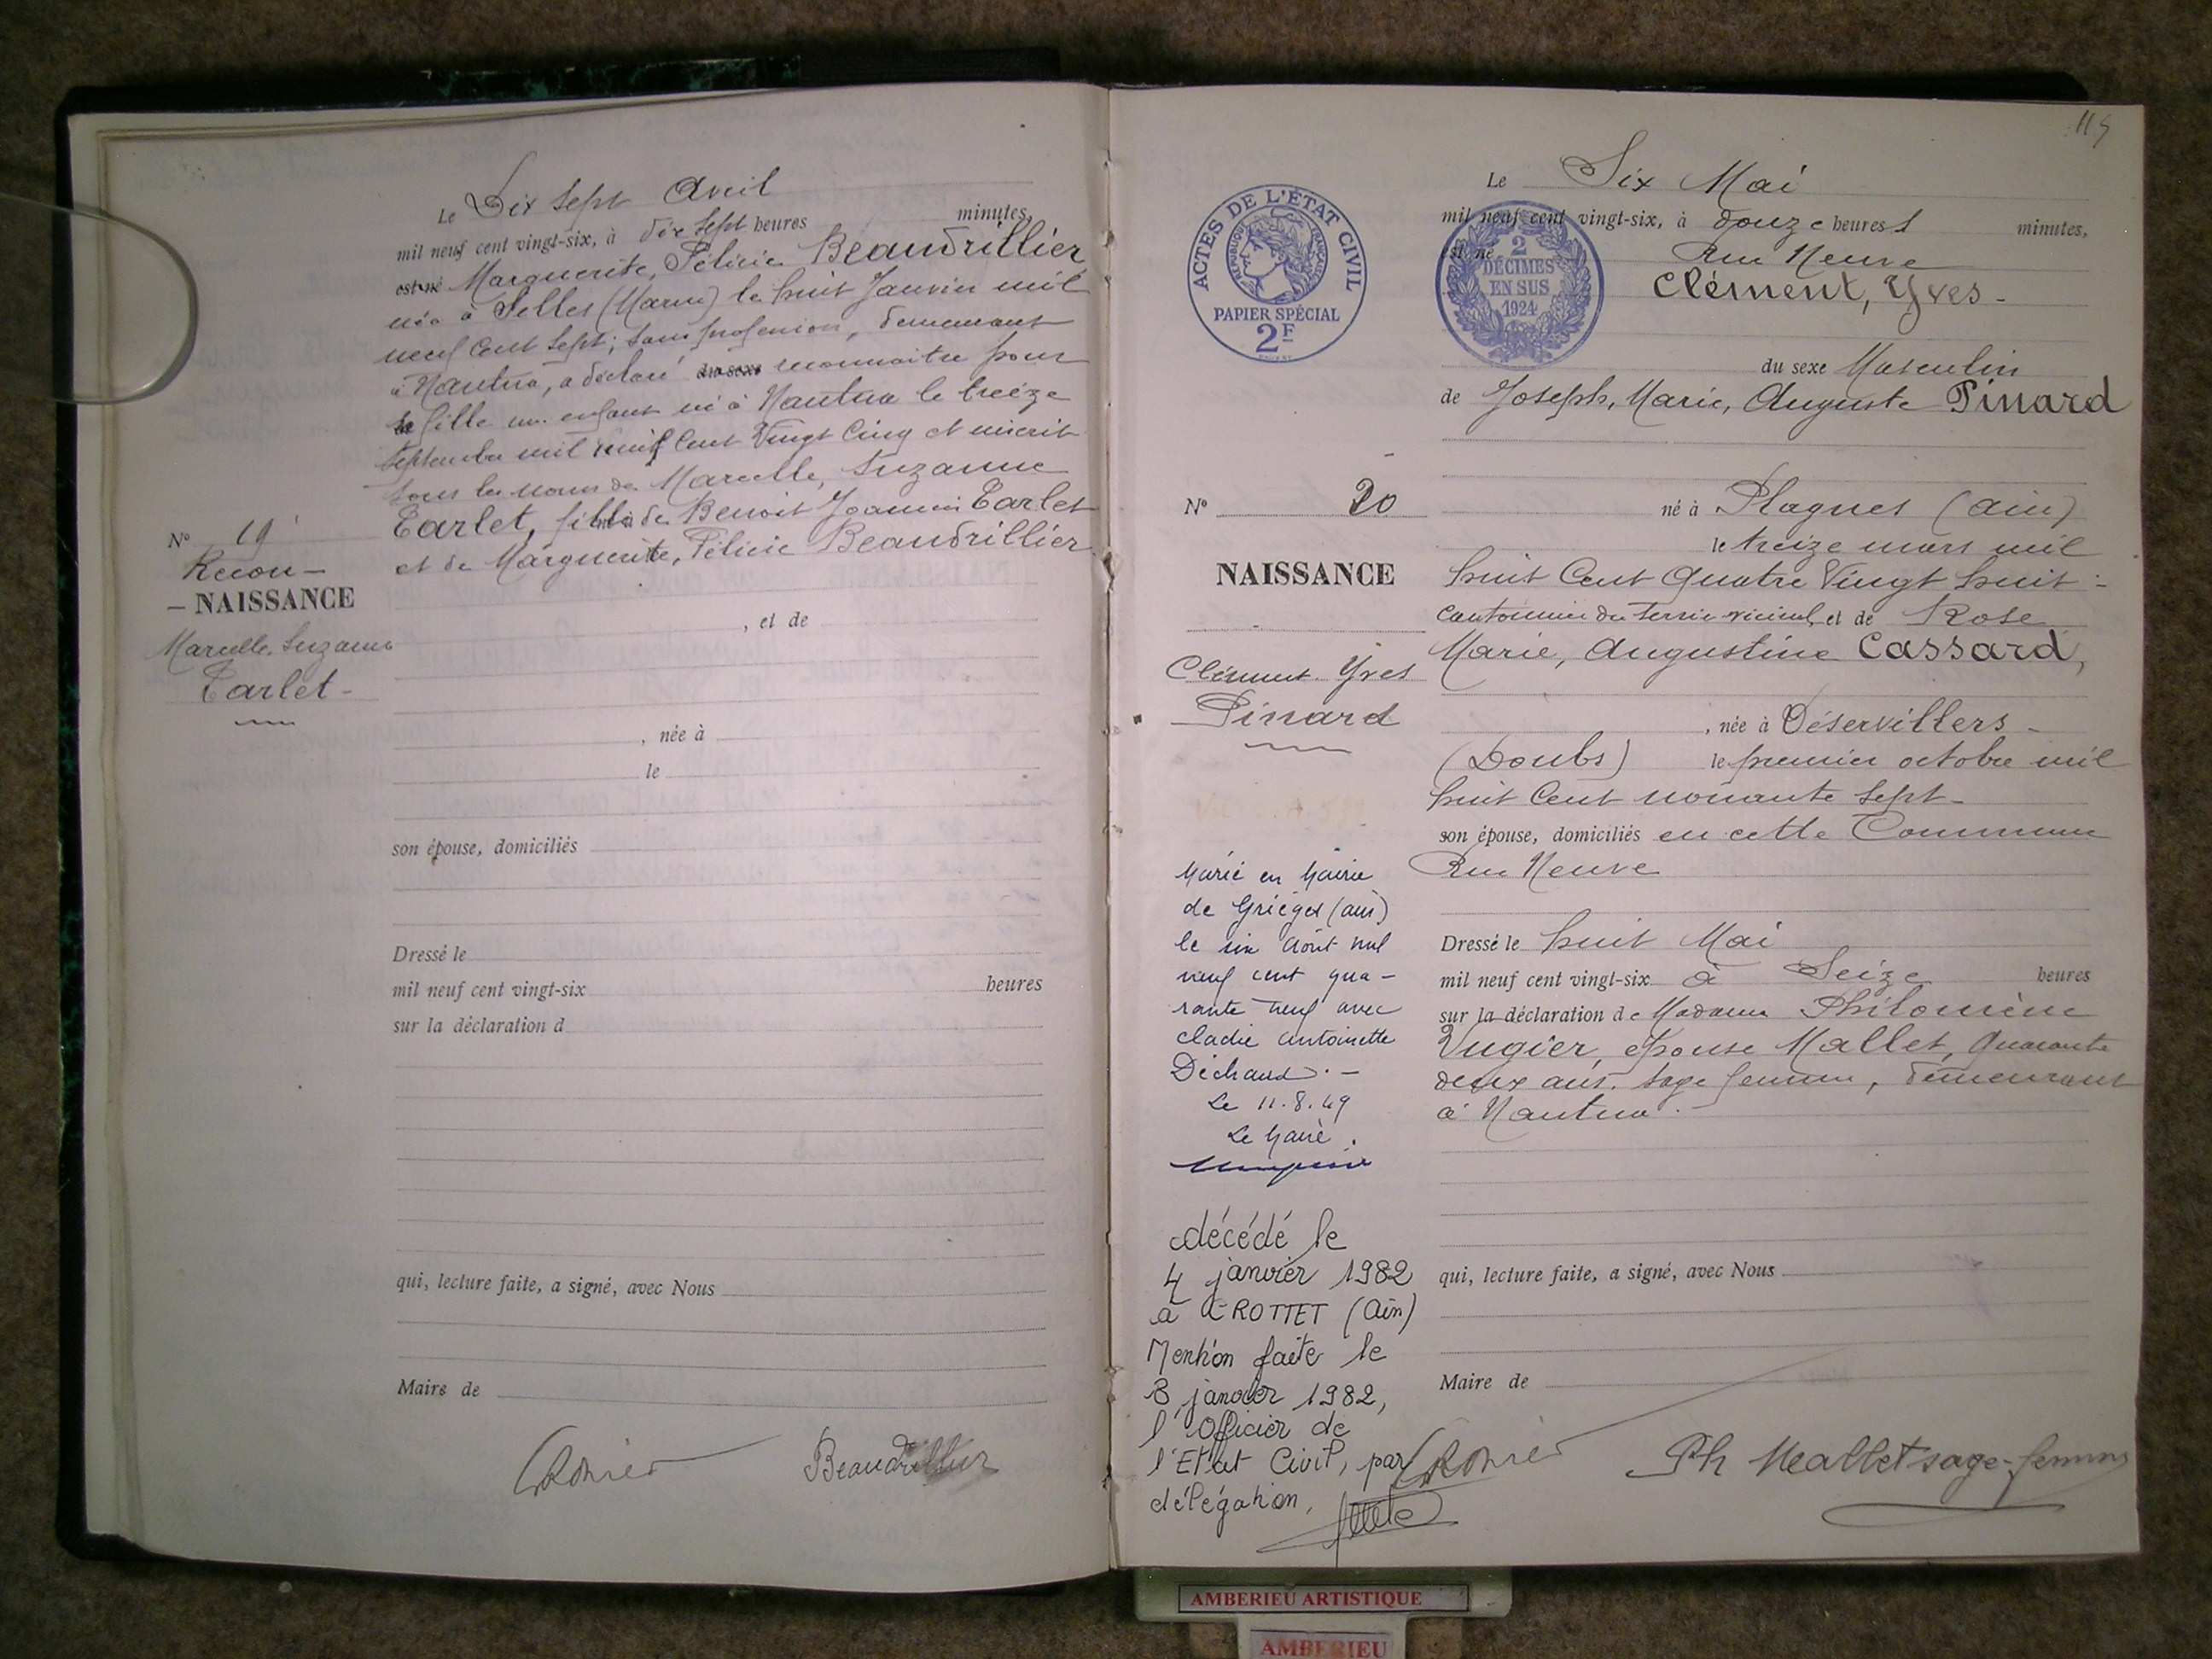 Le Dix sept Avril
mil neuf cent vingt-six, à dix sept heures minutes,
est né Marguerite, Félicie Beaudrillier
née à Selles (Marne) le huit Janvier mil
neuf cent sept, sans profession, demeurant
à Nantua, a déclaré du sexe reconnaître pour
sa fille un enfant né à Nantua le treize
Septembre mil neuf Cent Vingt Cinq et inscrit
sous les noms de Marcelle, Suzanne
Tarlet, fille de Benoit Joannin Tarlet
et de Marguerite, Félicie Beaudrillier
N° 19
Recon-
- NAISSANCE
Marcelle Suzanne
Tarlet -
, et de
, née à
le
son épouse, domiciliés
Dressé le
mil neuf cent vingt-six heures
sur la déclaration d
qui, lecture faite, a signé, avec Nous
Maire de
Beaudrillier
115
ACTES DE L'ÉTAT CIVIL
RÉPUBLIQUE FRANÇAISE
PAPIER SPÉCIAL
2F
2
DÉCIMES
EN SUS
1924
Le Six Mai
mil neuf cent vingt-six, à douze heures minutes,
est né Rue Neuve
Clément, Yves -
du sexe Masculin
de Joseph, Marie, Auguste Pinard
N° 20
NAISSANCE
Clément Yves
Pinard
né à Plagnes (Ain)
le treize mars mil
huit Cent Quatre Vingt huit -
Cantonnier du Service vicinal, et de Rose
Marie, Augustine Cassard,
, née à Déservillers -
(Doubs) le premier octobre mil
huit Cent nonante sept -
son épouse, domiciliés en cette Commune
Rue Neuve
Dressé le huit Mai
mil neuf cent vingt-six à Seize heures
sur la déclaration de Madame Philomène
Vugier, épouse Mallet, Quarante
deux ans, sage femme, demeurant
à Nantua. -
Marié en Mairie
de Grièges (Ain)
le six Août mil
neuf cent qua-
rante neuf avec
cladie Antoinette
Déchaud. -
Le 11.8.49
Le Maire.
décédé le
4 janvier 1982
à CROTTET (Ain)
Mention faite le
8 janvier 1982,
l'Officier de
l'Etat Civil, par
délégation,
qui, lecture faite, a signé, avec Nous
Maire de
Ph Mallet sage-femme
AMBERIEU ARTISTIQUE
AMBERIEU